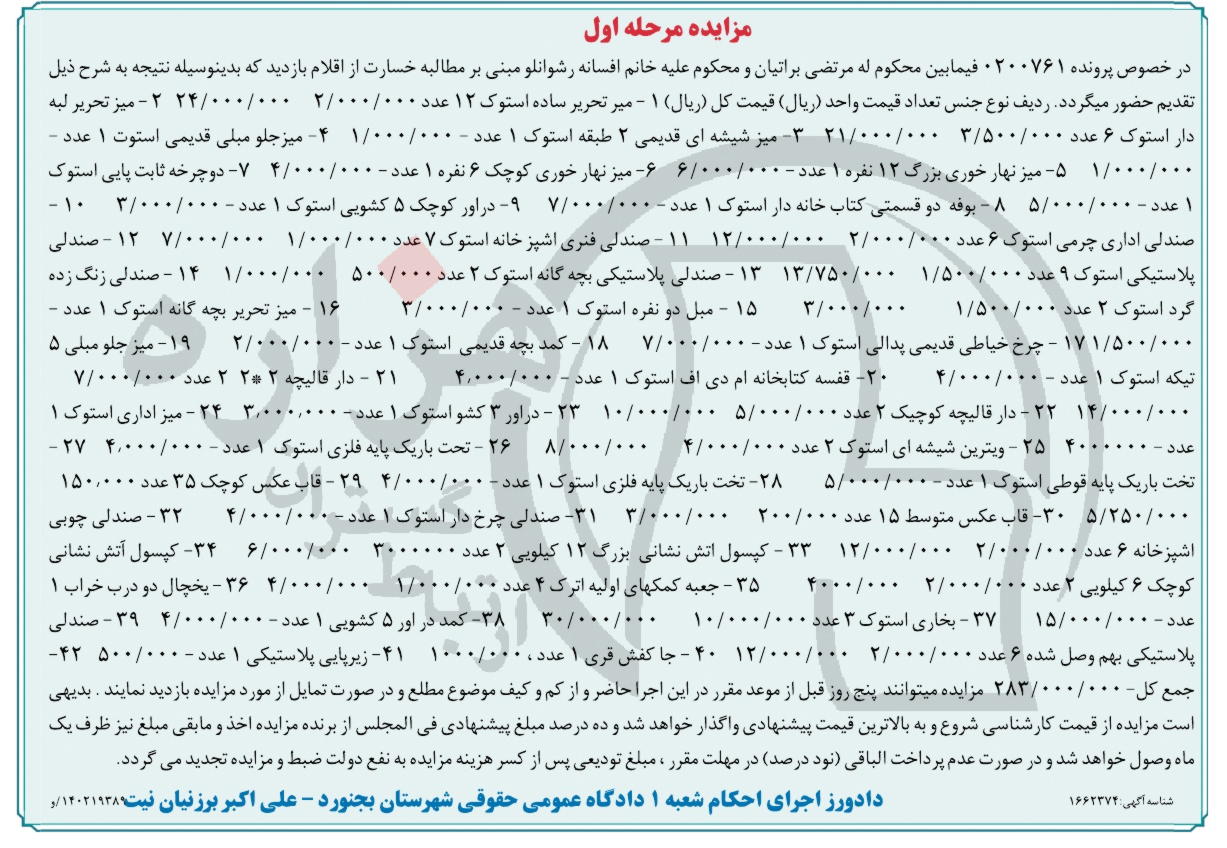 مزایده مرحله اول
در خصوص پرونده ۰۲۰۰۷۶۱ فیمابین محکوم له مرتضی براتیان و محکوم علیه خانم افسانه رشوانلو مبنی بر مطالبه خسارت از اقلام بازدید که بدینوسیله نتیجه به شرح ذیل
تقدیم حضور میگردد. ردیف نوع جنس تعداد قیمت واحد (ریال) قیمت کل (ریال) ۱ - میر تحریر ساده استوک ۱۲ عدد ۲/۰۰۰/۰۰۰ ۲۴/۰۰۰/۰۰۰ ۲ - میز تحریر لبه
دار استوک ۶ عدد ۳/۵۰۰/۰۰۰ ۲۱/۰۰۰/۰۰۰ ۳- میز شیشه ای قدیمی ۲ طبقه استوک ۱ عدد - ۱/۰۰۰/۰۰۰ ۴- میزجلو مبلی قدیمی استوت ۱ عدد -
۱/۰۰۰/۰۰۰ ۵- میز نهار خوری بزرگ ۱۲ نفره ۱ عدد - ۶/۰۰۰/۰۰۰ ۶- میز نهار خوری کوچک ۶ نفره ۱ عدد - ۴/۰۰۰/۰۰۰ ۷- دوچرخه ثابت پایی استوک
۱ عدد - ۵/۰۰۰/۰۰۰ ۸ - بوفه دو قسمتی کتاب خانه دار استوک ۱ عدد - ۷/۰۰۰/۰۰۰ ۹- دراور کوچک ۵ کشویی استوک ۱ عدد - ۳/۰۰۰/۰۰۰ ۱۰ -
صندلی اداری چرمی استوک ۶ عدد ۲/۰۰۰/۰۰۰ ۱۲/۰۰۰/۰۰۰ ۱۱ - صندلی فنری اشپز خانه استوک ۷ عدد ۱/۰۰۰/۰۰۰ ۷/۰۰۰/۰۰۰ ۱۲ - صندلی
پلاستیکی استوک ۹ عدد ۱/۵۰۰/۰۰۰ ۱۳/۷۵۰/۰۰۰ ۱۳ - صندلی پلاستیکی بچه گانه استوک ۲ عدد ۵۰۰/۰۰۰ ۱/۰۰۰/۰۰۰ ۱۴ - صندلی زنگ زده
گرد استوک ۲ عدد ۱/۵۰۰/۰۰۰ ۳/۰۰۰/۰۰۰ ۱۵ - مبل دو نفره استوک ۱ عدد - ۳/۰۰۰/۰۰۰ ۱۶ - میز تحریر بچه گانه استوک ۱ عدد -
۱/۵۰۰/۰۰۰ ۱۷ - چرخ خیاطی قدیمی پدالی استوک ۱ عدد - ۷/۰۰۰/۰۰۰ ۱۸ - کمد بچه قدیمی استوک ۱ عدد - ۲/۰۰۰/۰۰۰ ۱۹- میز جلو مبلی ۵
تیکه استوک ۱ عدد - ۴/۰۰۰/۰۰۰ ۲۰- قفسه کتابخانه ام دی اف استوک ۱ عدد - ۴،۰۰۰/۰۰۰ ۲۱ - دار قالیچه ۲*۲ ۲ عدد ۷/۰۰۰/۰۰۰
۱۴/۰۰۰/۰۰۰ ۲۲ - دار قالیچه کوچیک ۲ عدد ۵/۰۰۰/۰۰۰ ۱۰/۰۰۰/۰۰۰ ۲۳ - دراور ۳ کشو استوک ۱ عدد - ۳،۰۰۰،۰۰۰ ۲۴ - میز اداری استوک ۱
عدد - ۴۰۰۰۰۰۰ ۲۵ - ویترین شیشه ای استوک ۲ عدد ۴/۰۰۰/۰۰۰ ۸/۰۰۰/۰۰۰ ۲۶ - تحت باریک پایه فلزی استوک ۱ عدد - ۴،۰۰۰/۰۰۰ ۲۷ -
تخت باریک پایه قوطی استوک ۱ عدد - ۵/۰۰۰/۰۰۰ ۲۸- تخت باریک پایه فلزی استوک ۱ عدد - ۴/۰۰۰/۰۰۰ ۲۹ - قاب عکس کوچک ۳۵ عدد ۱۵۰،۰۰۰
۵/۲۵۰/۰۰۰ ۳۰- قاب عکس متوسط ۱۵ عدد ۲۰۰/۰۰۰ ۳/۰۰۰/۰۰۰ ۳۱- صندلی چرخ دار استوک ۱ عدد - ۴/۰۰۰/۰۰۰ ۳۲ - صندلی چوبی
اشپزخانه ۶ عدد ۲/۰۰۰/۰۰۰ ۱۲/۰۰۰/۰۰۰ ۳۳ - کپسول اتش نشانی بزرگ ۱۲ کیلویی ۲ عدد ۳۰۰۰۰۰۰ ۶/۰۰۰/۰۰۰ ۳۴- کپسول آتش نشانی
کوچک ۶ کیلویی ۲ عدد ۲/۰۰۰/۰۰۰ ۴۰۰۰/۰۰۰ ۳۵ - جعبه کمکهای اولیه اترک ۴ عدد ۱/۰۰۰/۰۰۰ ۴/۰۰۰/۰۰۰ ۳۶ - یخچال دو درب خراب ۱
عدد - ۱۵/۰۰۰/۰۰۰ ۳۷ - بخاری استوک ۳ عدد ۱۰/۰۰۰/۰۰۰ ۳۰/۰۰۰/۰۰۰ ۳۸- کمد در اور ۵ کشویی ۱ عدد - ۴/۰۰۰/۰۰۰ ۳۹ - صندلی
پلاستیکی بهم وصل شده ۶ عدد ۲/۰۰۰/۰۰۰ ۱۲/۰۰۰/۰۰۰ ۴۰ - جا کفش قری ۱ عدد ، ۱۰۰۰/۰۰۰ ۴۱- زیرپایی پلاستیکی ۱ عدد - ۵۰۰/۰۰۰ ۴۲-
جمع کل - ۲۸۳/۰۰۰/۰۰۰ مزایده میتوانند پنج روز قبل از موعد مقرر در این اجرا حاضر و از کم و کیف موضوع مطلع و در صورت تمایل از مورد مزایده بازدید نمایند . بدیهی
است مزایده از قیمت کارشناسی شروع و به بالاترین قیمت پیشنهادی واگذار خواهد شد و ده درصد مبلغ پیشنهادی فی المجلس از برنده مزایده اخذ و مابقی مبلغ نیز ظرف یک
ماه وصول خواهد شد و در صورت عدم پرداخت الباقی (نود درصد) در مهلت مقرر ، مبلغ تودیعی پس از کسر هزینه مزایده به نفع دولت ضبط و مزایده تجدید می گردد.
شناسه آگهی: ۱۶۶۲۳۷۴ دادورز اجرای احکام شعبه ۱ دادگاه عمومی حقوقی شهرستان بجنورد - علی اکبر برزنیان نیت ۱۴۰۲۱۹۳۸۹/و
هزاره